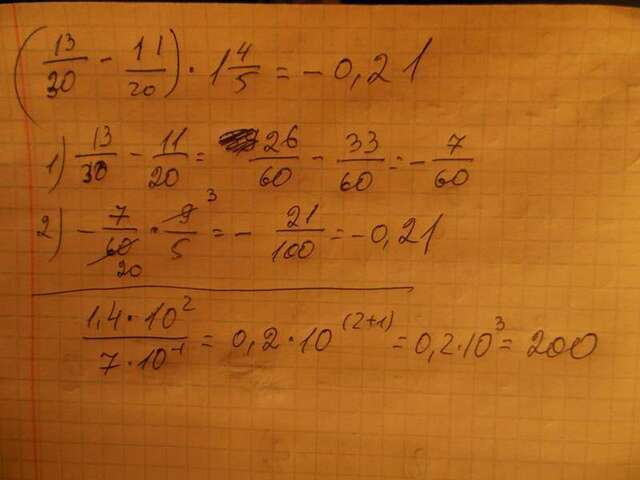 (13/30 - 11/20) · 1 4/5 = - 0,21
1) 13/30 - 11/20 = 26/60 - 33/60 = - 7/60
2) - 7/60 · 9/5 = - 21/100 = - 0,21
20 3
1,4·10² / 7·10⁻¹ = 0,2·10⁽²⁺¹⁾ = 0,2·10³ = 200